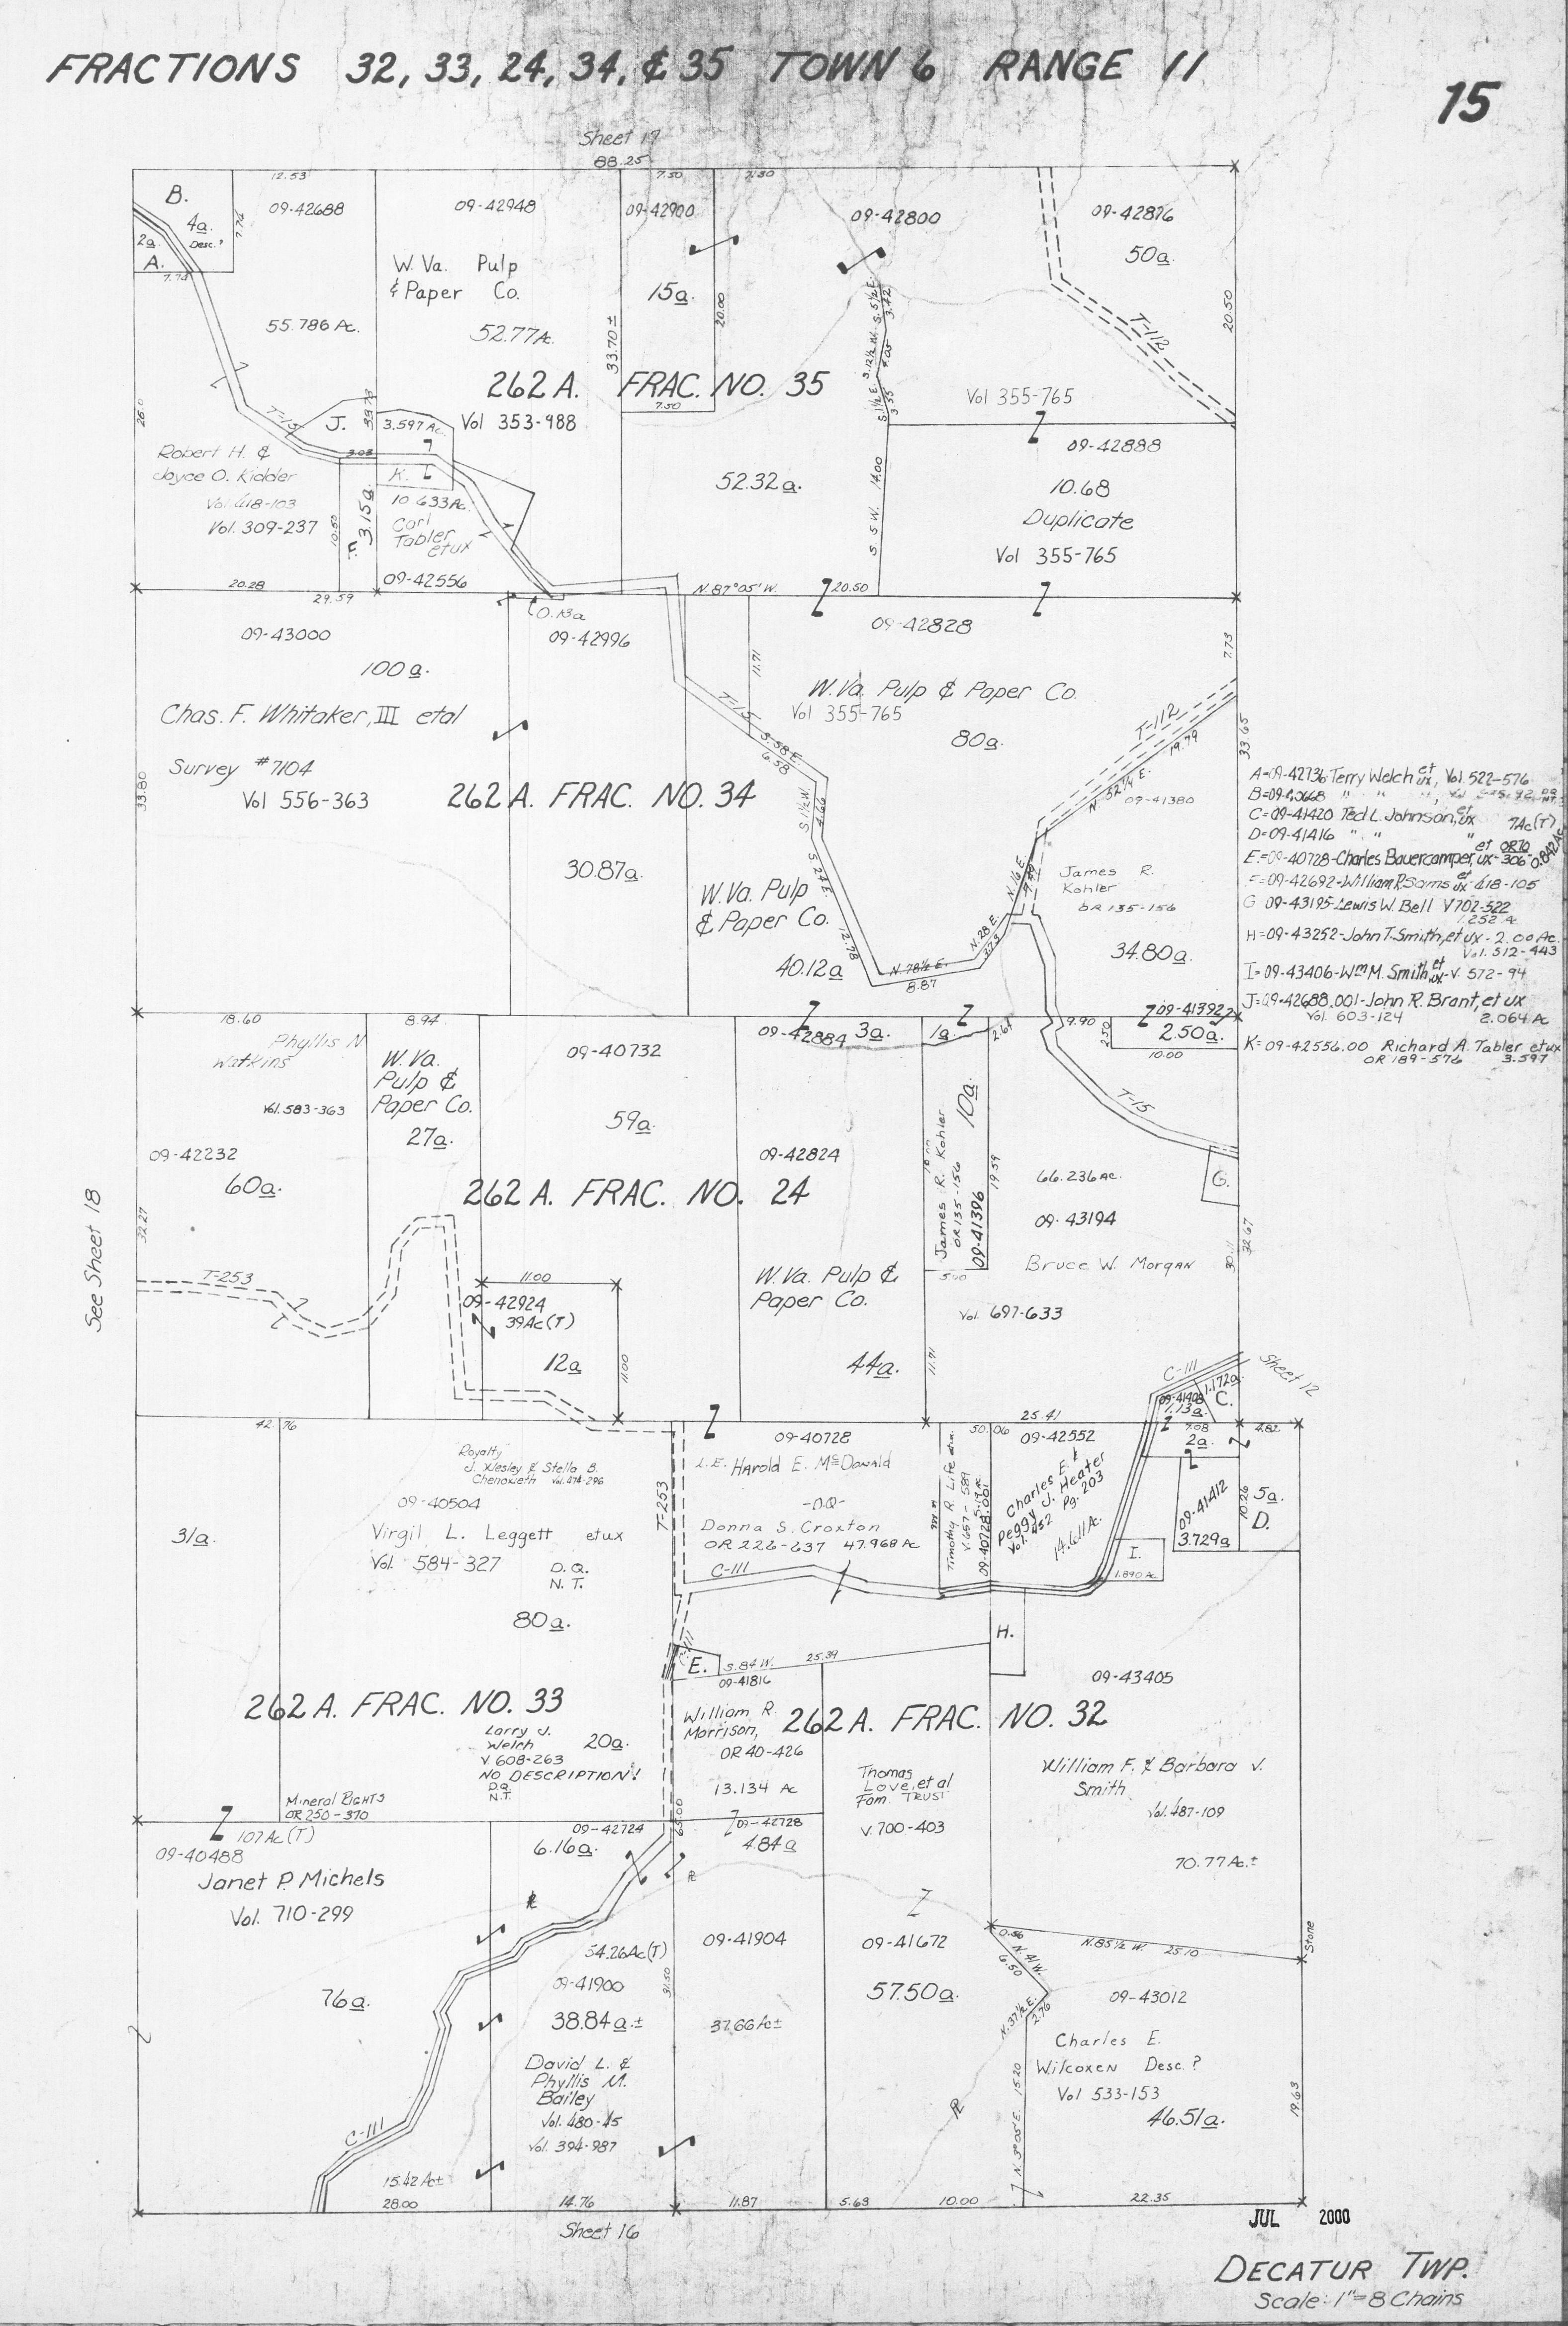 FRACTIONS 32, 33, 24, 34, & 35 TOWN 6 RANGE 11
15
Sheet 17
88.25
12.53
7.50
2.30
B.
4a.
Desc.?
2a.
A.
7.74
7.74
09-42688
55.786 Ac.
09-42948
W. Va. Pulp
& Paper Co.
52.77A.
33.70 ±
09-42900
15a.
20.00
7.50
09-42800
S. 5½ E.
3.42
S. 12½ W.
4.05
S. 1½ E.
3.55
S. 5 W. 14.00
09-42876
50a.
20.50
T-112
262 A. FRAC. NO. 35
Vol 353-988
Vol 355-765
09-42888
10.68
Duplicate
Vol 355-765
52.32a.
26.0
T-15
J.
3.597 Ac.
K.
3.03
10.633 Ac.
Carl
Tabler
etux
09-42556
Robert H. &
Joyce O. Kidder
Vol 418-103
Vol. 309-237
10.50
F. 3.15a.
20.28
29.59
0.13a
N. 87°05' W.
20.50
09-43000
100a.
Chas. F. Whitaker, III etal
Survey #7104
Vol 556-363
33.80
09-42996
30.87a.
11.71
09-42828
W. Va. Pulp & Paper Co.
Vol 355-765
80a.
7.73
33.65
T-15
S. 58 E.
6.58
S. 1½ W.
4.66
S. 24 E.
12.78
T-112
19.79
N. 52¼ E.
09-41380
262 A. FRAC. NO. 34
W. Va. Pulp
& Paper Co.
40.12a
N. 78½ E.
8.87
N. 28 E.
3.73
N. 16 E.
James R.
Kohler
OR 135-156
34.80a.
A=09-42736 Terry Welch et ux, Vol. 522-576
B=09-42668 " " "
C=09-41420 Ted L. Johnson, et ux 7Ac(T)
D=09-41416 " " "
E=09-40728-Charles Bauercamper, et ux- OR70 306 0.842Ac
F=09-42692-William R. Sams et ux 418-105
G 09-43195-Lewis W. Bell V702-522
1.252 Ac
H=09-43252-John T. Smith, et ux-2.00 Ac.
Vol. 512-443
I=09-43406-Wm M. Smith et ux-V. 572-94
J=09-42688.001-John R. Brant, et ux
Vol. 603-124 2.064 Ac
K=09-42556.00 Richard A. Tabler etux
OR 189-576 3.597
18.60
8.94
Phyllis N
Watkins
Vol. 583-363
09-42232
60a.
32.27
T-253
W. Va.
Pulp &
Paper Co.
27a.
09-40732
59a.
09-42884 3a.
1a.
2.61
9.90
2.50
09-41392
2.50a.
10.00
T-15
262 A. FRAC. NO. 24
09-42824
W. Va. Pulp &
Paper Co.
44a.
James R. Kohler
OR 135-156
09-41396
10a.
19.59
5.00
11.91
66.236 Ac.
09-43194
Bruce W. Morgan
Vol. 697-633
G.
32.67
See Sheet 18
11.00
09-42924
39Ac(T)
12a
11.00
C-111
Sheet 12
1.172a.
1.13a.
C.
42.76
25.41
50.06
7.08
4.82
2a.
31a.
Royalty
J. Wesley & Stella B.
Chenoweth Vol. 474-296
09-40504
Virgil L. Leggett etux
Vol. 584-327
D.Q.
N.T.
80a.
T-253
09-40728
L.E. Harold E. McDonald
-DQ-
Donna S. Croxton
OR 226-637 47.968 Ac
C-111
Timothy R. Life etux.
V.657-589
5.19 Ac
09-40728.001
09-42552
Charles E. &
Peggy J. Heater
Vol. 452 Pg. 203
14.611Ac.
I.
1.890 Ac.
09-41412
3.729a
10.26
5a.
D.
H.
E.
S. 84 W.
25.39
09-41816
262 A. FRAC. NO. 33
262 A. FRAC. NO. 32
Larry J.
Welch
V 608-263
NO DESCRIPTION!
D.Q.
N.T.
20a.
Mineral RIGHTS
OR 250-370
William R.
Morrison,
OR 40-426
13.134 Ac
Thomas
Love, et al
Fam. TRUST
V. 700-403
09-43405
William F. & Barbara V.
Smith
Vol. 487-109
70.77 Ac.±
107 Ac (T)
09-40488
Janet P. Michels
Vol. 710-299
76a.
09-42724
6.16a.
65.00
09-42728
4.84a
54.26Ac(T)
09-41900
38.84a.±
31.50
David L. &
Phyllis M.
Bailey
Vol. 480-45
Vol. 394-987
09-41904
37.66 Ac±
09-41672
57.50a.
0.56
N. 41 W.
6.50
N. 37½ E.
2.76
N. 3°05' E. 15.20
N. 85½ W. 25.10
Stone
09-43012
Charles E.
Wilcoxen Desc.?
Vol 533-153
46.51a.
19.63
C-111
15.42 Ac±
28.00
14.76
11.87
5.63
10.00
22.35
Sheet 16
JUL 2000
DECATUR TWP.
Scale: 1"=8 Chains